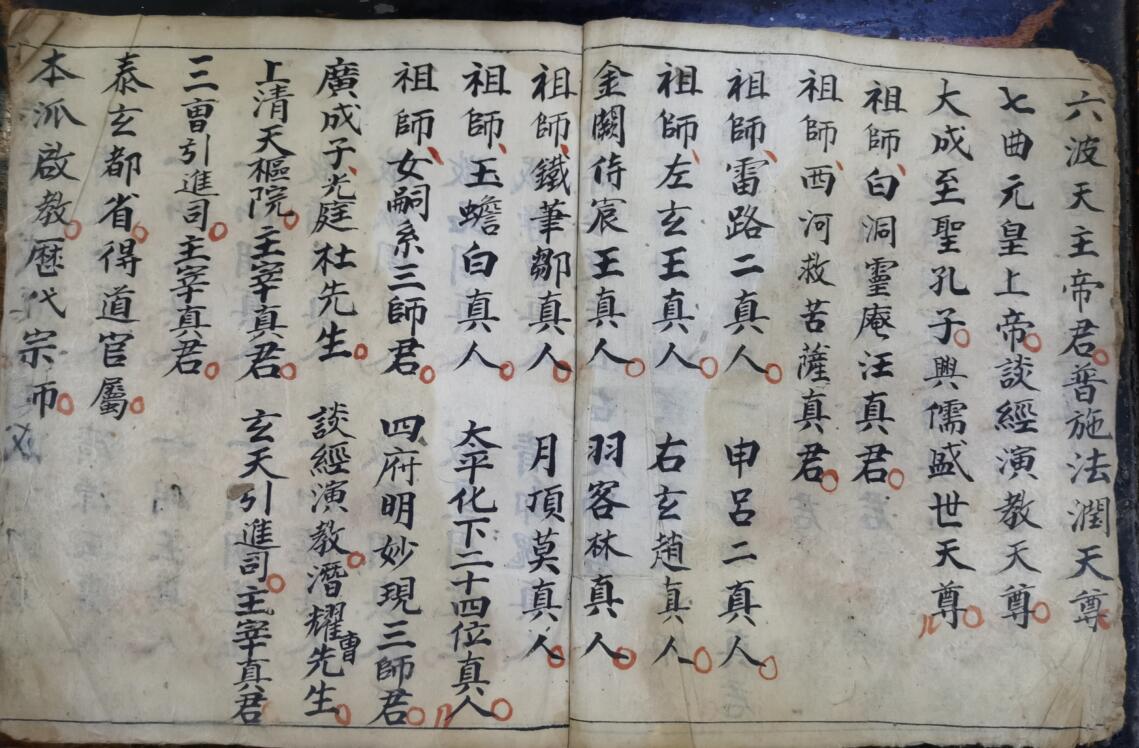 六波天主帝君普施法潤天尊
七曲元皇上帝談經演教天尊
大成至聖孔子興儒盛世天尊
祖師白洞靈庵汪真君
祖師西河救苦薩真君
祖師雷路二真人 申呂二真人
祖師左玄王真人 右玄趙真人
金闕侍宸王真人 羽客林真人
祖師鐵筆鄒真人 月頂莫真人
祖師玉蟾白真人 太平化下二十四位真人
祖師女嗣系三師君 四府明妙現三師君
廣成子光庭杜先生 談經演教潛耀曹先生
上清天樞院主宰真君 玄天引進司主宰真君
三曹引進司主宰真君
泰玄都省得道官屬
本派啟教歷代宗師